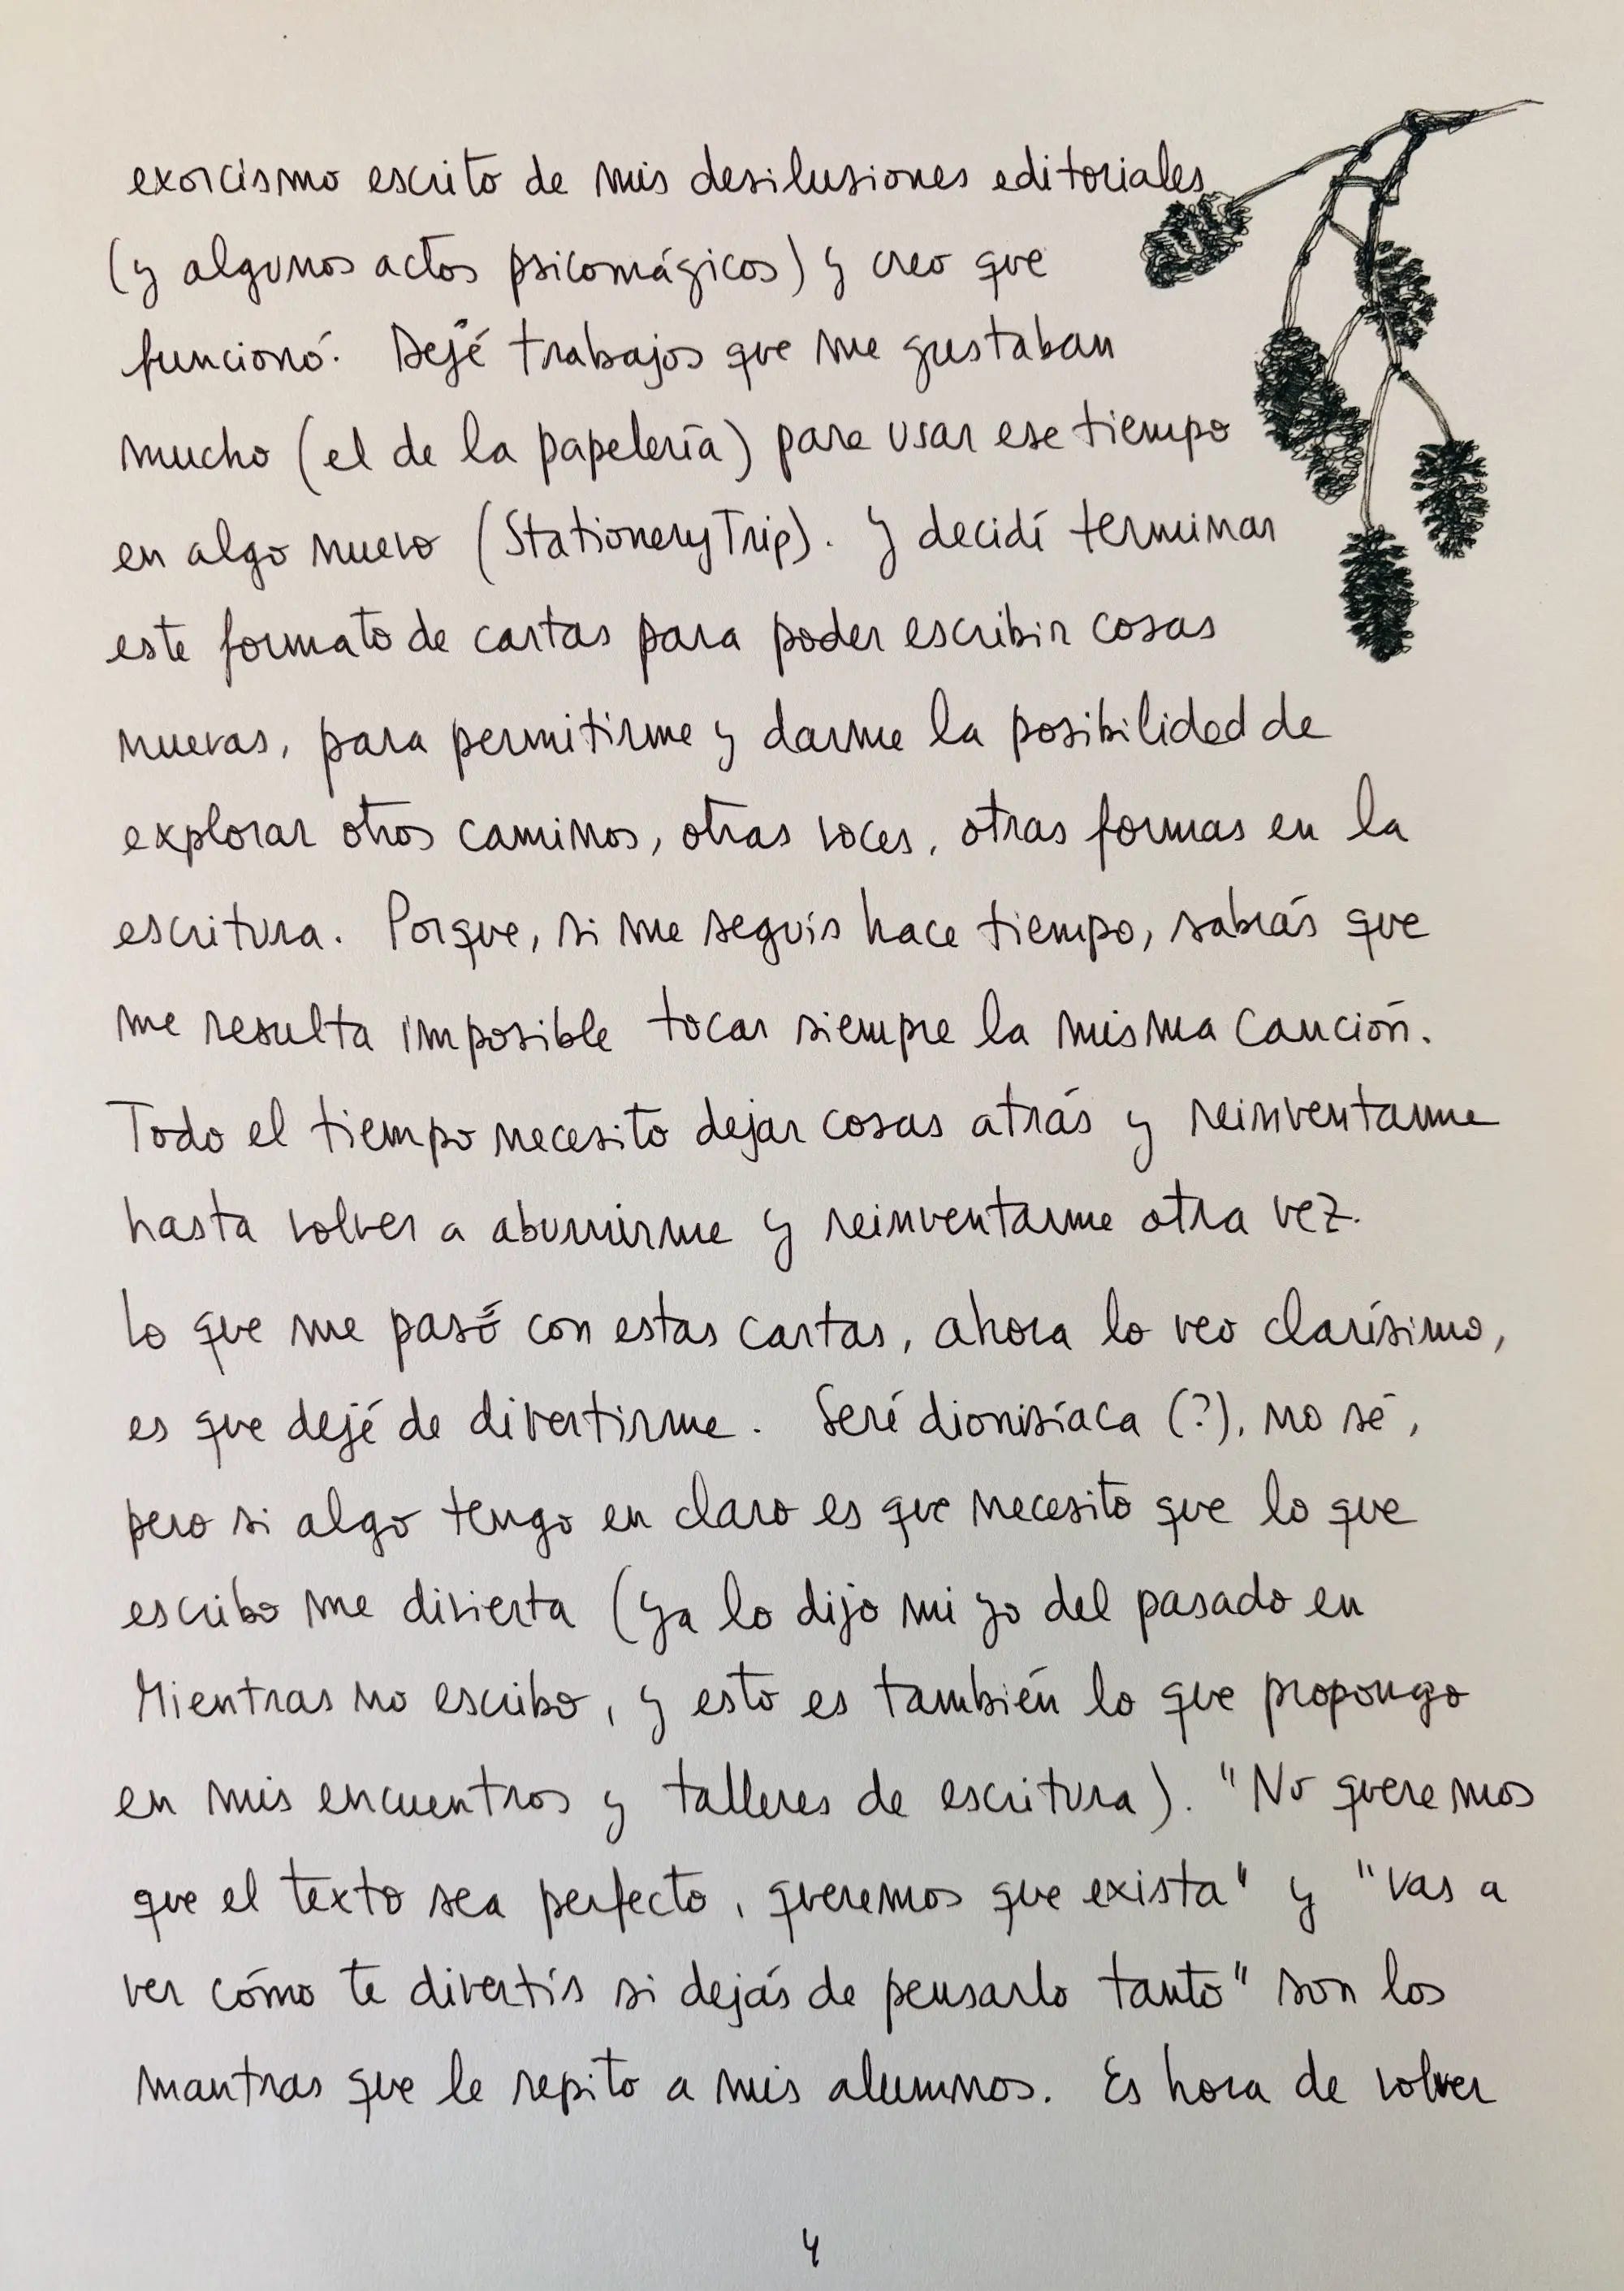 exorcismo escrito de mis desilusiones editoriales
(y algunos actos psicomágicos) y creo que
funcionó. Dejé trabajos que me gustaban
mucho (el de la papelería) para usar ese tiempo
en algo nuevo (StationeryTrip). Y decidí terminar
este formato de cartas para poder escribir cosas
nuevas, para permitirme y darme la posibilidad de
explorar otros caminos, otras voces, otras formas en la
escritura. Porque, si me seguís hace tiempo, sabrás que
me resulta imposible tocar siempre la misma canción.
Todo el tiempo necesito dejar cosas atrás y reinventarme
hasta volver a aburrirme y reinventarme otra vez.
Lo que me pasó con estas cartas, ahora lo veo clarísimo,
es que dejé de divertirme. Seré dionisíaca (?), no sé,
pero si algo tengo en claro es que necesito que lo que
escribo me divierta (ya lo dijo mi yo del pasado en
Mientras no escribo, y esto es también lo que propongo
en mis encuentros y talleres de escritura). "No queremos
que el texto sea perfecto, queremos que exista" y "vas a
ver cómo te divertís si dejás de pensarlo tanto" son los
mantras que le repito a mis alumnos. Es hora de volver
4